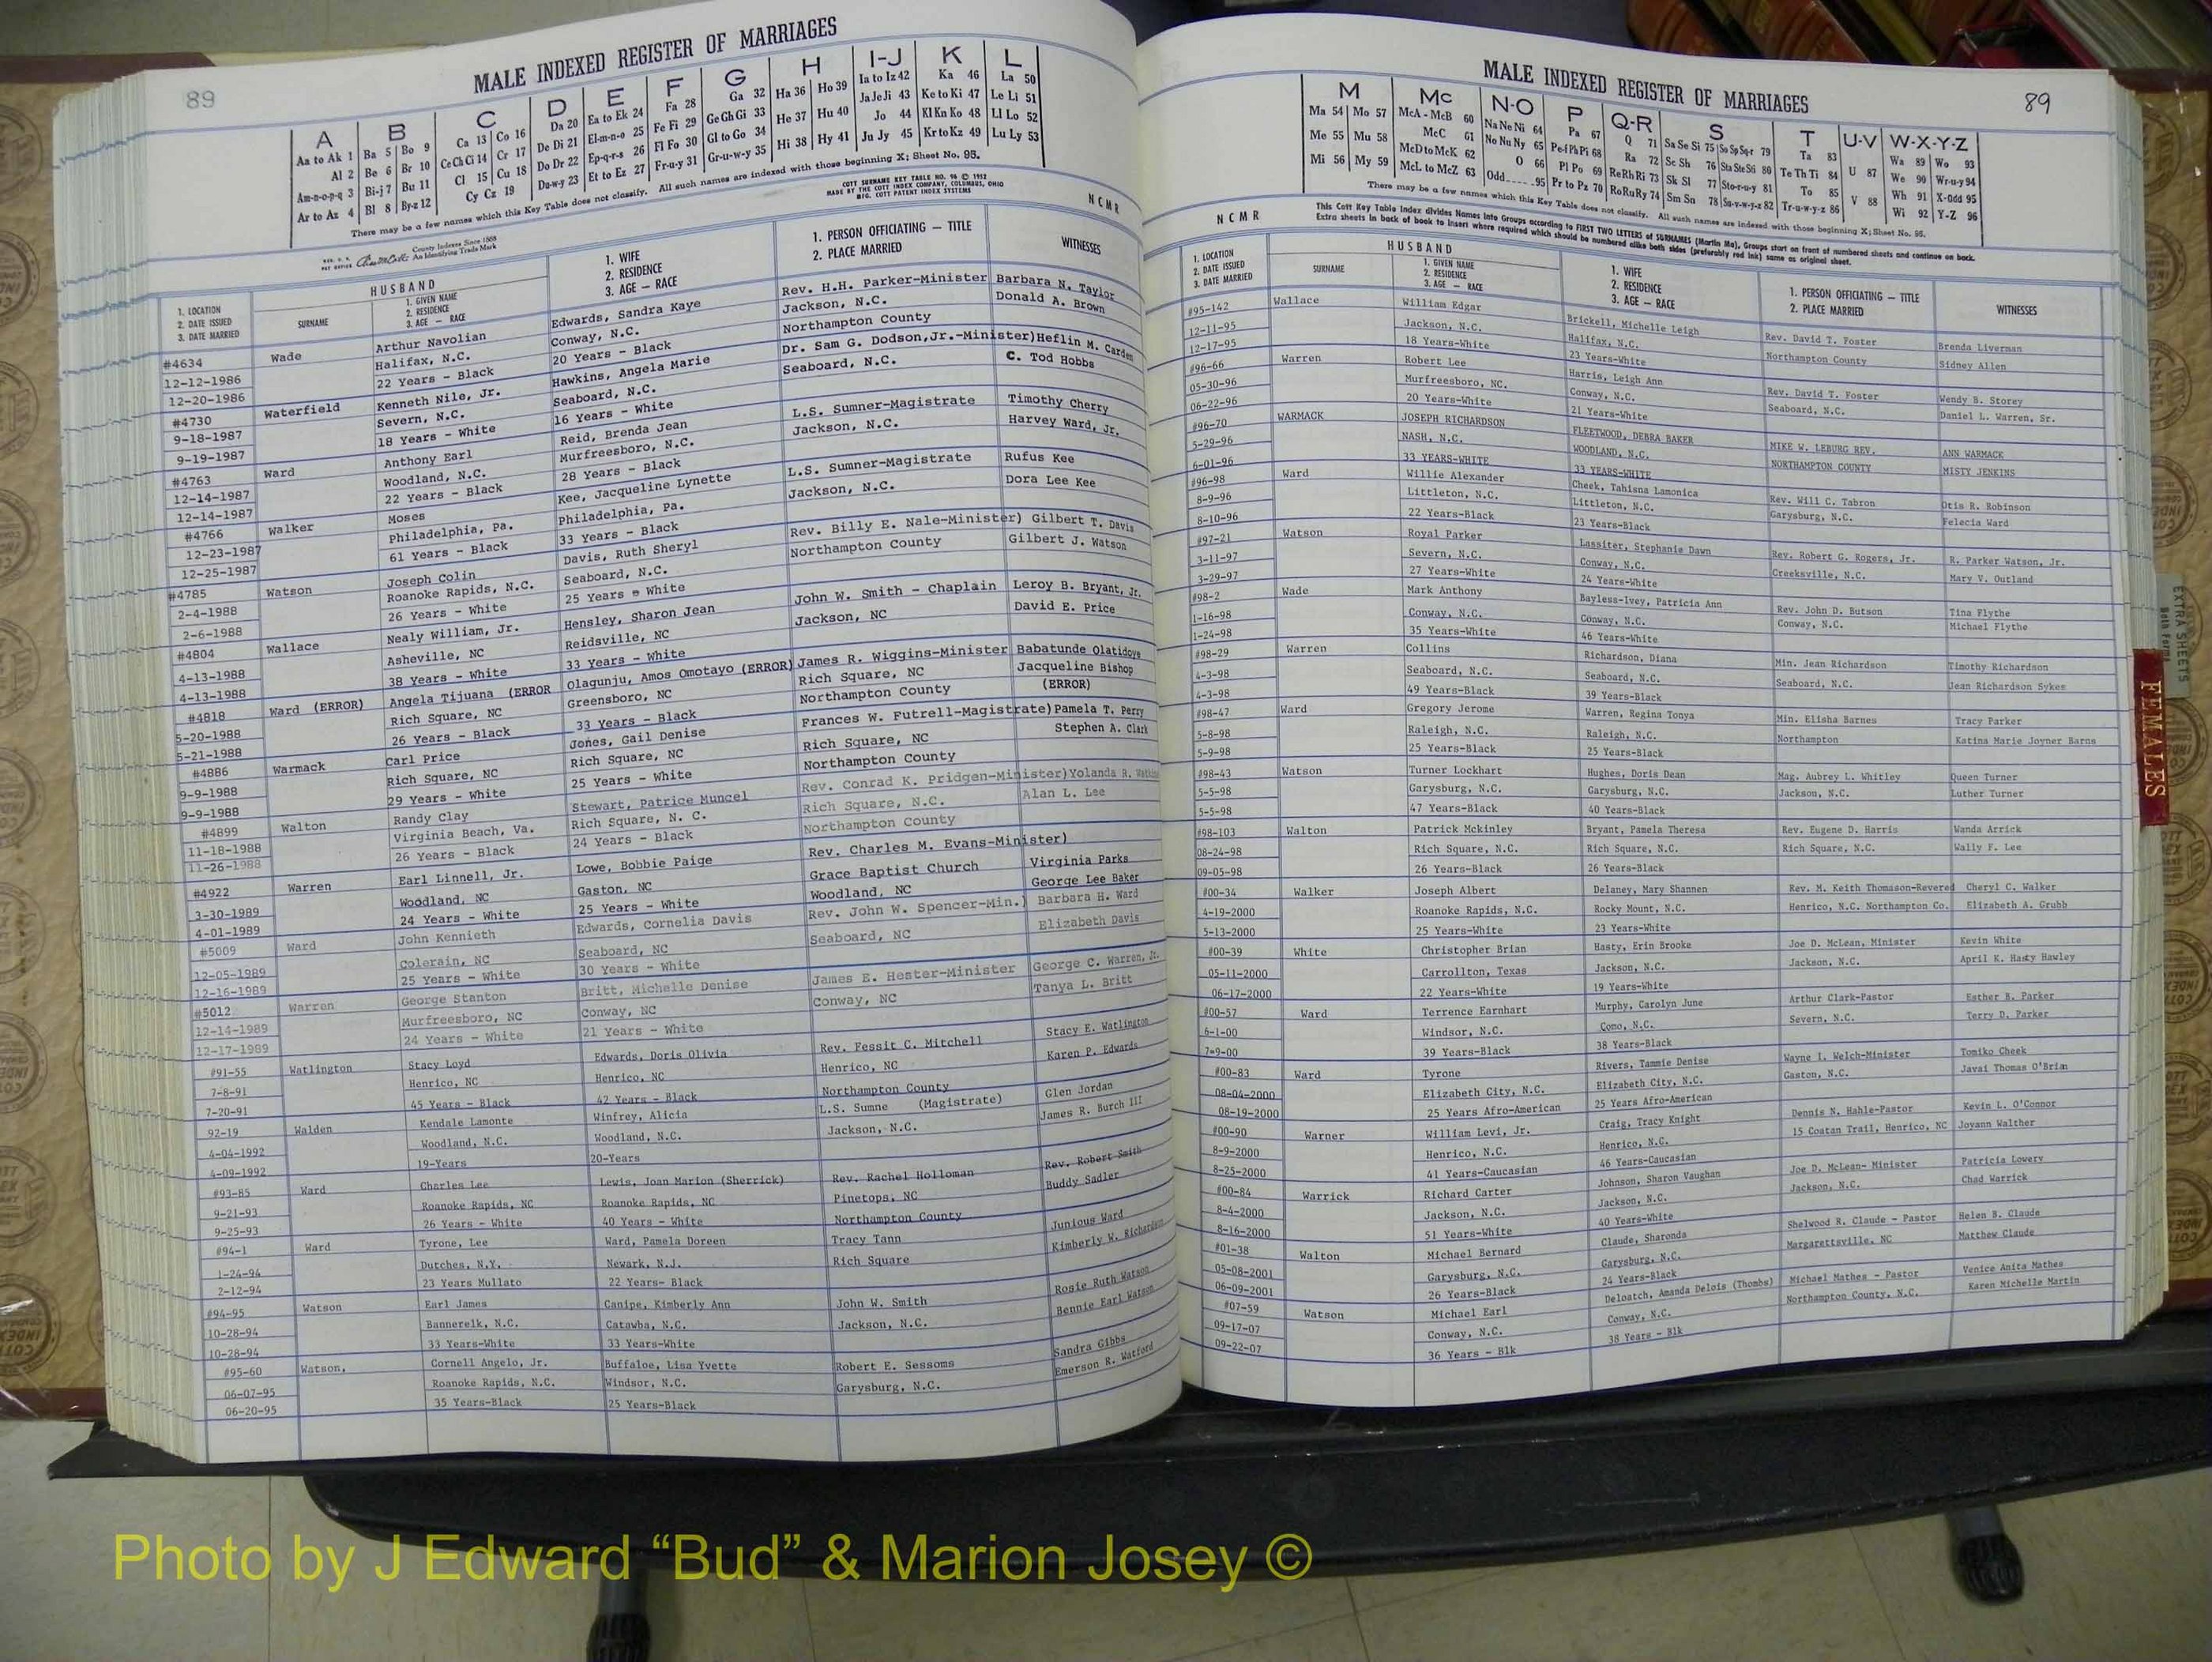 89
MALE INDEXED REGISTER OF MARRIAGES
A B C D E F G H I-J K L
Aa to Ak 1 Ba 5 Bo 9 Ca 13 Co 16 Da 20 Ea to Ek 24 Fa 28 Ga 32 Ha 36 Ho 39 Ia to Iz 42 Ka 46 La 50
Al 2 Be 6 Br 10 Ce Ch Ci 14 Cr 17 De Di 21 El-m-n-o 25 Fe Fi 29 Ge Gh Gi 33 He 37 Hu 40 Ja Je Ji 43 Ke to Ki 47 Le Li 51
Am-n-o-p-q 3 Bi-j 7 Bu 11 Cl 15 Cu 18 Do Dr 22 Ep-q-r-s 26 Fl Fo 30 Gl to Go 34 Hi 38 Hy 41 Jo 44 Kl Kn Ko 48 Ll Lo 52
Ar to Az 4 Bl 8 By-z 12 Cy Cz 19 Du-w-y 23 Et to Ez 27 Fr-u-y 31 Gr-u-w-y 35 Ju Jy 45 Kr to Kz 49 Lu Ly 53
There may be a few names which this Key Table does not classify. All such names are indexed with those beginning X; Sheet No. 95.
County Indexes Since 1888
An Identifying Trade Mark
COTT SURNAME KEY TABLE NO. 96 © 1952
MADE BY THE COTT INDEX COMPANY, COLUMBUS, OHIO
MFG. COTT PATENT INDEX SYSTEMS
NCMR
1. LOCATION
2. DATE ISSUED
3. DATE MARRIED
HUSBAND
SURNAME
1. GIVEN NAME
2. RESIDENCE
3. AGE — RACE
1. WIFE
2. RESIDENCE
3. AGE — RACE
1. PERSON OFFICIATING — TITLE
2. PLACE MARRIED
WITNESSES
#4634 Wade Arthur Navolian Edwards, Sandra Kaye Rev. H.H. Parker-Minister Barbara N. Taylor
12-12-1986 Halifax, N.C. Conway, N.C. Jackson, N.C. Donald A. Brown
12-20-1986 22 Years - Black 20 Years - Black Northampton County
#4730 Waterfield Kenneth Nile, Jr. Hawkins, Angela Marie Dr. Sam G. Dodson,Jr.-Minister) Heflin M. Carden
9-18-1987 Severn, N.C. Seaboard, N.C. Seaboard, N.C. C. Tod Hobbs
9-19-1987 18 Years - White 16 Years - White
#4763 Ward Anthony Earl Reid, Brenda Jean L.S. Sumner-Magistrate Timothy Cherry
12-14-1987 Woodland, N.C. Murfreesboro, N.C. Jackson, N.C. Harvey Ward, Jr.
12-14-1987 22 Years - Black 28 Years - Black
#4766 Walker Moses Kee, Jacqueline Lynette L.S. Sumner-Magistrate Rufus Kee
12-23-1987 Philadelphia, Pa. Philadelphia, Pa. Jackson, N.C. Dora Lee Kee
12-25-1987 61 Years - Black 33 Years - Black
#4785 Watson Joseph Colin Davis, Ruth Sheryl Rev. Billy E. Nale-Minister) Gilbert T. Davis
2-4-1988 Roanoke Rapids, N.C. Seaboard, N.C. Northampton County Gilbert J. Watson
2-6-1988 26 Years - White 25 Years - White
#4804 Wallace Nealy William, Jr. Hensley, Sharon Jean John W. Smith - Chaplain Leroy B. Bryant, Jr.
4-13-1988 Asheville, NC Reidsville, NC Jackson, NC David E. Price
4-13-1988 38 Years - White 33 Years - White
#4818 Ward (ERROR) Angela Tijuana (ERROR Olagunju, Amos Omotayo (ERROR) James R. Wiggins-Minister Babatunde Olatidoye
5-20-1988 Rich Square, NC Greensboro, NC Rich Square, NC Jacqueline Bishop
5-21-1988 26 Years - Black 33 Years - Black Northampton County (ERROR)
#4886 Warmack Carl Price Jones, Gail Denise Frances W. Futrell-Magistrate) Pamela T. Perry
9-9-1988 Rich Square, NC Rich Square, NC Rich Square, NC Stephen A. Clark
9-9-1988 29 Years - White 25 Years - White Northampton County
#4899 Walton Randy Clay Stewart, Patrice Muncel Rev. Conrad K. Pridgen-Minister) Yolanda R.
11-18-1988 Virginia Beach, Va. Rich Square, N. C. Rich Square, N.C. Alan L. Lee
11-26-1988 26 Years - Black 24 Years - Black Northampton County
#4922 Warren Earl Linnell, Jr. Lowe, Bobbie Paige Rev. Charles M. Evans-Minister)
3-30-1989 Woodland, NC Gaston, NC Grace Baptist Church Virginia Parks
4-01-1989 24 Years - White 25 Years - White Woodland, NC George Lee Baker
#5009 Ward John Kennieth Edwards, Cornelia Davis Rev. John W. Spencer-Min.) Barbara H. Ward
12-05-1989 Colerain, NC Seaboard, NC Seaboard, NC Elizabeth Davis
12-16-1989 25 Years - White 30 Years - White
#5012 Warren George Stanton Britt, Michelle Denise James E. Hester-Minister George C. Warren, Jr.
12-14-1989 Murfreesboro, NC Conway, NC Conway, NC Tanya L. Britt
12-17-1989 24 Years - White 21 Years - White
#91-55 Watlington Stacy Loyd Edwards, Doris Olivia Rev. Fessit C. Mitchell Stacy E. Watlington
7-8-91 Henrico, NC Henrico, NC Henrico, NC Karen P. Edwards
7-20-91 45 Years - Black 42 Years - Black Northampton County
92-19 Walden Kendale Lamonte Winfrey, Alicia L.S. Sumne (Magistrate) Glen Jordan
4-04-1992 Woodland, N.C. Woodland, N.C. Jackson, N.C. James R. Burch III
4-09-1992 19-Years 20-Years
#93-85 Ward Charles Lee Lewis, Joan Marion (Sherrick) Rev. Rachel Holloman Rev. Robert Smith
9-21-93 Roanoke Rapids, NC Roanoke Rapids, NC Pinetops, NC Buddy Sadler
9-25-93 26 Years - White 40 Years - White Northampton County
#94-1 Ward Tyrone, Lee Ward, Pamela Doreen Tracy Tann Junious Ward
1-24-94 Dutches, N.Y. Newark, N.J. Rich Square Kimberly W. Richardson
2-12-94 23 Years Mullato 22 Years- Black
#94-95 Watson Earl James Canipe, Kimberly Ann John W. Smith Rosie Ruth Watson
10-28-94 Bannerelk, N.C. Catawba, N.C. Jackson, N.C. Bennie Earl Watson
10-28-94 33 Years-White 33 Years-White
#95-60 Watson, Cornell Angelo, Jr. Buffaloe, Lisa Yvette Robert E. Sessoms Sandra Gibbs
06-07-95 Roanoke Rapids, N.C. Windsor, N.C. Garysburg, N.C. Emerson R. Watford
06-20-95 35 Years-Black 25 Years-Black
MALE INDEXED REGISTER OF MARRIAGES
89
M Mc N-O P Q-R S T U-V W-X-Y-Z
Ma 54 Mo 57 McA - McB 60 Na Ne Ni 64 Pa 67 Q 71 Sa Se Si 75 So Sp Sq-r 79 Ta 83 U 87 Wa 89 Wo 93
Me 55 Mu 58 McC 61 No Nu Ny 65 Pe-f Ph Pi 68 Ra 72 Sc Sh 76 Sta Ste Sti 80 Te Th Ti 84 V 88 We 90 Wr-u-y 94
Mi 56 My 59 McD to McK 62 O 66 Pl Po 69 Re Rh Ri 73 Sk Sl 77 Sto-r-u-y 81 To 85 Wh 91 X-Odd 95
McL to McZ 63 Odd 95 Pr to Pz 70 Ro Ru Ry 74 Sm Sn 78 Su-v-w-y-z 82 Tr-u-w-y-z 86 Wi 92 Y-Z 96
There may be a few names which this Key Table does not classify. All such names are indexed with those beginning X; Sheet No. 95.
This Cott Key Table Index divides Names into Groups according to FIRST TWO LETTERS of SURNAMES (Martin Ma), Groups start on front of numbered sheets and continue on back.
Extra sheets in back of book to insert where required which should be numbered alike both sides (preferably red ink) same as original sheet.
NCMR
1. LOCATION
2. DATE ISSUED
3. DATE MARRIED
HUSBAND
SURNAME
1. GIVEN NAME
2. RESIDENCE
3. AGE — RACE
1. WIFE
2. RESIDENCE
3. AGE — RACE
1. PERSON OFFICIATING — TITLE
2. PLACE MARRIED
WITNESSES
#95-142 Wallace William Edgar Brickell, Michelle Leigh Rev. David T. Foster Brenda Liverman
12-11-95 Jackson, N.C. Halifax, N.C. Northampton County Sidney Allen
12-17-95 18 Years-White 23 Years-White
#96-66 Warren Robert Lee Harris, Leigh Ann Rev. David T. Foster Wendy B. Storey
05-30-96 Murfreesboro, NC. Conway, N.C. Seaboard, N.C. Daniel L. Warren, Sr.
06-22-96 20 Years-White 21 Years-White
#96-70 WARMACK JOSEPH RICHARDSON FLEETWOOD, DEBRA BAKER MIKE W. LEBURG REV. ANN WARMACK
5-29-96 NASH, N.C. WOODLAND, N.C. NORTHAMPTON COUNTY MISTY JENKINS
6-01-96 33 YEARS-WHITE 33 YEARS-WHITE
#96-98 Ward Willie Alexander Cheek, Tahisna Lamonica Rev. Will C. Tabron Otis R. Robinson
8-9-96 Littleton, N.C. Littleton, N.C. Garysburg, N.C. Felecia Ward
8-10-96 22 Years-Black 23 Years-Black
#97-21 Watson Royal Parker Lassiter, Stephanie Dawn Rev. Robert G. Rogers, Jr. R. Parker Watson, Jr.
3-11-97 Severn, N.C. Conway, N.C. Creeksville, N.C. Mary V. Outland
3-29-97 27 Years-White 24 Years-White
#98-2 Wade Mark Anthony Bayless-Ivey, Patricia Ann Rev. John D. Butson Tina Flythe
1-16-98 Conway, N.C. Conway, N.C. Conway, N.C. Michael Flythe
1-24-98 35 Years-White 46 Years-White
#98-29 Warren Collins Richardson, Diana Min. Jean Richardson Timothy Richardson
4-3-98 Seaboard, N.C. Seaboard, N.C. Seaboard, N.C. Jean Richardson Sykes
4-3-98 49 Years-Black 39 Years-Black
#98-47 Ward Gregory Jerome Warren, Regina Tonya Min. Elisha Barnes Tracy Parker
5-8-98 Raleigh, N.C. Raleigh, N.C. Northampton Katina Marie Joyner Barns
5-9-98 25 Years-Black 25 Years-Black
#98-43 Watson Turner Lockhart Hughes, Doris Dean Mag. Aubrey L. Whitley Queen Turner
5-5-98 Garysburg, N.C. Garysburg, N.C. Jackson, N.C. Luther Turner
5-5-98 47 Years-Black 40 Years-Black
#98-103 Walton Patrick Mckinley Bryant, Pamela Theresa Rev. Eugene D. Harris Wanda Arrick
08-24-98 Rich Square, N.C. Rich Square, N.C. Rich Square, N.C. Wally F. Lee
09-05-98 26 Years-Black 26 Years-Black
#00-34 Walker Joseph Albert Delaney, Mary Shannen Rev. M. Keith Thomason-Revered Cheryl C. Walker
4-19-2000 Roanoke Rapids, N.C. Rocky Mount, N.C. Henrico, N.C. Northampton Co. Elizabeth A. Grubb
5-13-2000 25 Years-White 23 Years-White
#00-39 White Christopher Brian Hasty, Erin Brooke Joe D. McLean, Minister Kevin White
05-11-2000 Carrollton, Texas Jackson, N.C. Jackson, N.C. April K. Hasty Hawley
06-17-2000 22 Years-White 19 Years-White
#00-57 Ward Terrence Earnhart Murphy, Carolyn June Arthur Clark-Pastor Esther B. Parker
6-1-00 Windsor, N.C. Como, N.C. Severn, N.C. Terry D. Parker
7-9-00 39 Years-Black 38 Years-Black
#00-83 Ward Tyrone Rivers, Tammie Denise Wayne L. Welch-Minister Tomiko Cheek
08-04-2000 Elizabeth City, N.C. Elizabeth City, N.C. Gaston, N.C. Javai Thomas O'Brian
08-19-2000 25 Years Afro-American 25 Years Afro-American
#00-90 Warner William Levi, Jr. Craig, Tracy Knight Dennis N. Hahle-Pastor Kevin L. O'Connor
8-9-2000 Henrico, N.C. Henrico, N.C. 15 Coatan Trail, Henrico, NC Joyann Walther
8-25-2000 41 Years-Caucasian 46 Years-Caucasian
#00-84 Warrick Richard Carter Johnson, Sharon Vaughan Joe D. McLean- Minister Patricia Lowery
8-4-2000 Jackson, N.C. Jackson, N.C. Jackson, N.C. Chad Warrick
8-16-2000 51 Years-White 40 Years-White
#01-38 Walton Michael Bernard Claude, Sharonda Shelwood R. Claude - Pastor Helen B. Claude
05-08-2001 Garysburg, N.C. Garysburg, N.C. Margarettsville, NC Matthew Claude
06-09-2001 26 Years-Black 24 Years-Black
#07-59 Watson Michael Earl Deloatch, Amanda Delois (Thombs) Michael Mathes - Pastor Venice Anita Mathes
09-17-07 Conway, N.C. Conway, N.C. Northampton County, N.C. Karen Michelle Martin
09-22-07 36 Years - Blk 38 Years - Blk
EXTRA SHEETS
Both Forms
FEMALES
Photo by J Edward “Bud” & Marion Josey ©